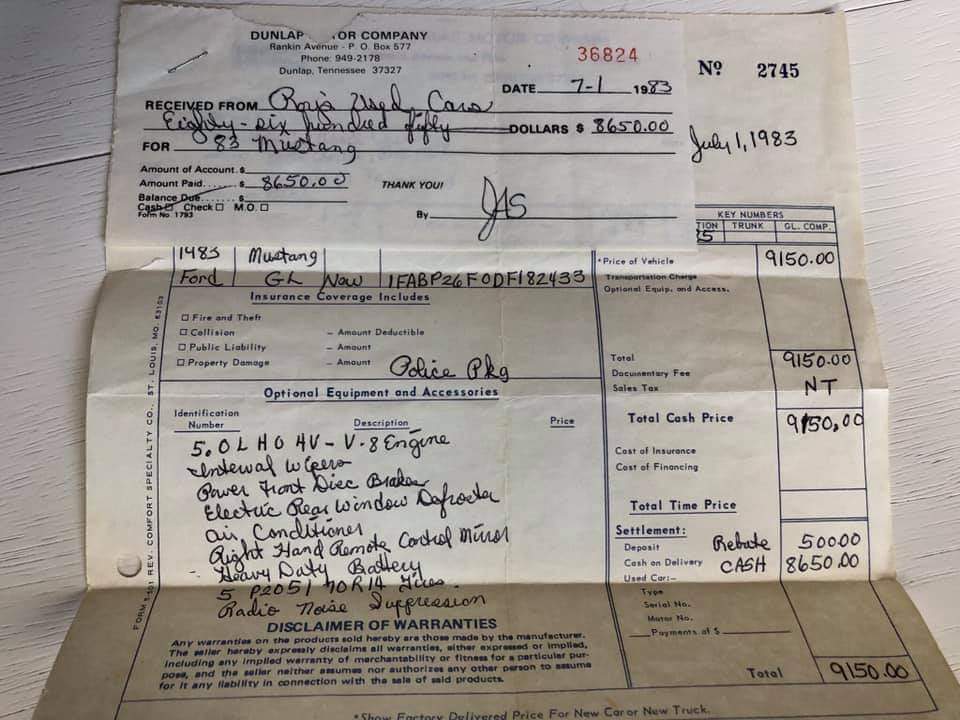 DUNLAP OR COMPANY
Rankin Avenue - P. O. Box 577
Phone: 949-2178
Dunlap, Tennessee 37327
36824
DATE 7-1 1983
RECEIVED FROM Roy's Used Cars
Eighty-six hundred fifty DOLLARS $ 8650.00
FOR 83 Mustang
Amount of Account. $
Amount Paid...... $ 8650.00
Balance Due...... $
Cash Check M.O.
Form No. 1793
THANK YOU!
By JAS
No 2745
July 1, 1983
KEY NUMBERS
TION TRUNK GL. COMP.
1983 Mustang
Ford GL New 1FABP26F0DF182433
Insurance Coverage Includes
Fire and Theft
Collision – Amount Deductible
Public Liability – Amount
Property Damage – Amount
Police Pkg
Optional Equipment and Accessories
Identification Number Description Price
5.0 L HO 4V - V-8 Engine
Interval Wipers
Power Front Disc Brakes
Electric Rear Window Defroster
Air Conditioner
Right Hand Remote Control Mirror
Heavy Duty Battery
5 P205/70R14 Tires
Radio Noise Suppression
DISCLAIMER OF WARRANTIES
Any warranties on the products sold hereby are those made by the manufacturer.
The seller hereby expressly disclaims all warranties, either expressed or implied,
including any implied warranty of merchantability or fitness for a particular pur-
pose, and the seller neither assumes nor authorizes any other person to assume
for it any liability in connection with the sale of said products.
*Price of Vehicle 9150.00
Transportation Charge
Optional Equip. and Access.
Total 9150.00
Documentary Fee
Sales Tax NT
Total Cash Price 9150.00
Cost of Insurance
Cost of Financing
Total Time Price
Settlement:
Deposit Rebate 500.00
Cash on Delivery CASH 8650.00
Used Car:-
Type
Serial No.
Motor No.
Payments of $
Total 9150.00
*Show Factory Delivered Price For New Car or New Truck.
REV. COMFORT SPECIALTY CO., ST. LOUIS, MO. 63103